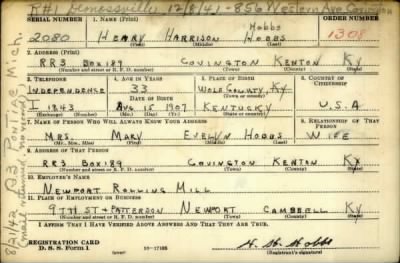 R#1 Demossville, 12/8/41 - 856 Western Ave Covington
SERIAL NUMBER 1. NAME (Print) ORDER NUMBER
Hobbs
2080 HENRY HARRISON HOBBS 1308
(First) (Middle) (Last)
2. ADDRESS (Print)
RR3 BOX 189 COVINGTON KENTON KY
(Number and street or R. F. D. number) (Town) (County) (State)
3. TELEPHONE 4. AGE IN YEARS 5. PLACE OF BIRTH 6. COUNTRY OF CITIZENSHIP
INDEPENDENCE 33 WOLF COUNTY, KY
DATE OF BIRTH (Town or county)
I 1843 AUG 15 1907 KENTUCKY U.S.A
(Exchange) (Number) (Mo.) (Day) (Yr.) (State or country)
7. NAME OF PERSON WHO WILL ALWAYS KNOW YOUR ADDRESS 8. RELATIONSHIP OF THAT PERSON
MRS. MARY EVELYN HOBBS WIFE
(Mr., Mrs., Miss) (First) (Middle) (Last)
9. ADDRESS OF THAT PERSON
RR3 BOX 189 COVINGTON KENTON KY
(Number and street or R. F. D. number) (Town) (County) (State)
10. EMPLOYER'S NAME
NEWPORT ROLLING MILL
11. PLACE OF EMPLOYMENT OR BUSINESS
9TH ST & PATTERSON NEWPORT CAMPBELL KY
(Number and street or R. F. D. number) (Town) (County) (State)
I AFFIRM THAT I HAVE VERIFIED ABOVE ANSWERS AND THAT THEY ARE TRUE.
REGISTRATION CARD
D. S. S. Form 1 (over) 16-17105 H. H. Hobbs
R3 Pontiac Mich.
(mail returned,